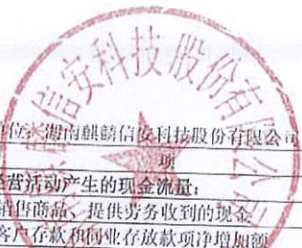 信安科技股份有限公
位：湖南麒麟信安科技股份有限公司
项
经营活动产生的现金流量：
销售商品、提供劳务收到的现金
客户存款和同业存放款项净增加额